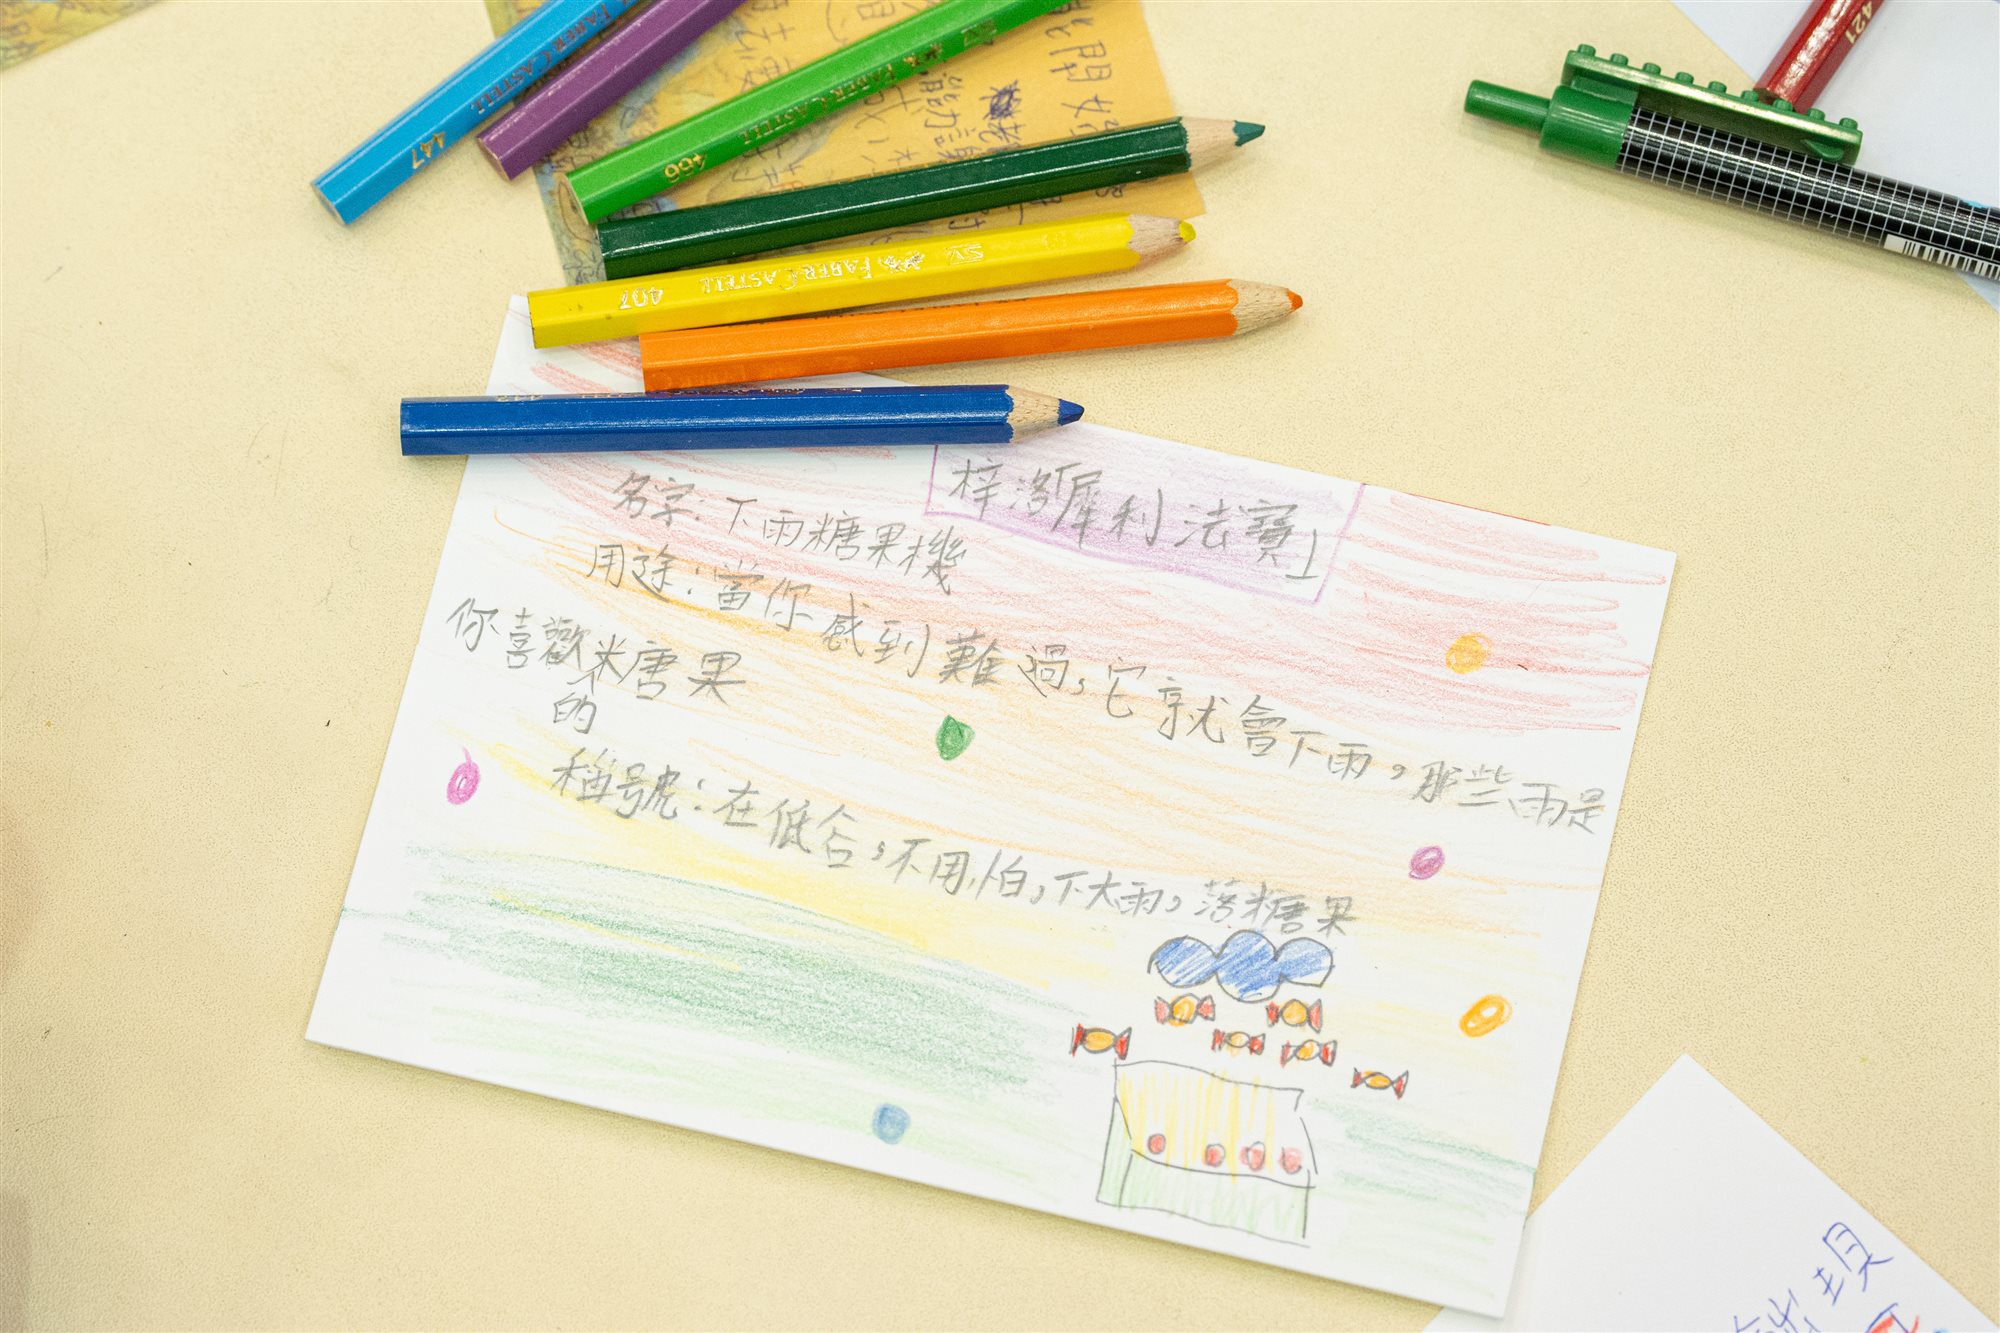 FABER-CASTELL
447
FABER-CASTELL
FABER-CASTELL
466
SV FABER-CASTELL
407
421
梓洛「犀利法寶」
名字:下雨糖果機
用途:當你感到難過,它就會下雨,那些雨是
你喜歡的糖果
稱號:在低谷,不用怕,下大雨,落糖果